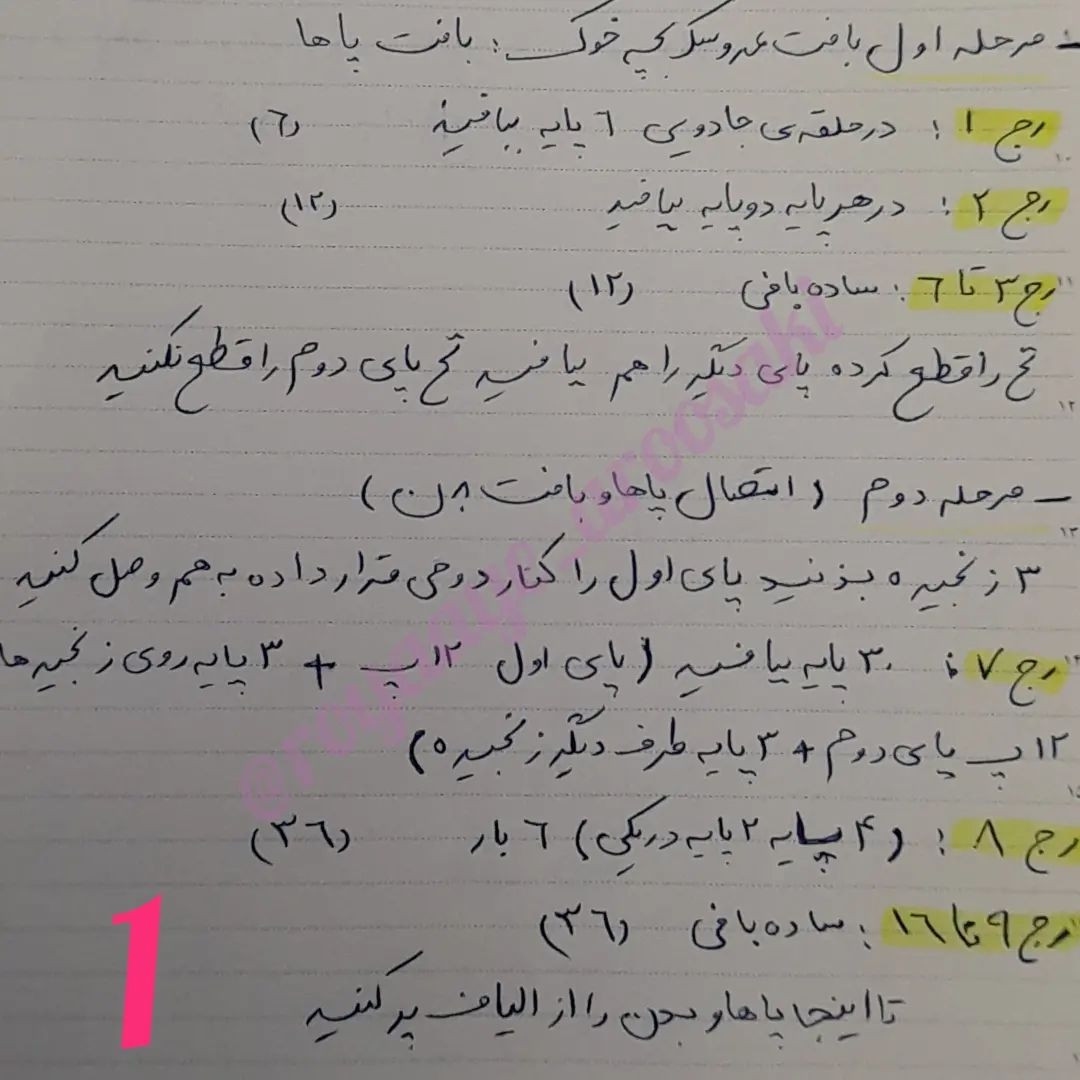 - مرحله اول بافت عروسک بچه خوک : بافت پاها
رج ۱ : در حلقه‌ی جادویی ٦ پایه ببافید (٦)
رج ۲ : در هر پایه دو پایه ببافید (۱۲)
رج ۳ تا ٦ : ساده بافی (۱۲)
نخ را قطع کرده پای دیگر را هم ببافید نخ پای دوم را قطع نکنید
- مرحله دوم (اتصال پاها و بافت بدن)
۳ زنجیره بزنید پای اول را کنار دومی قرار داده به هم وصل کنید
رج ۷ : ۳۰ پایه ببافید (پای اول ۱۲ پ + ۳ پایه روی زنجیرها
۱۲ پ پای دوم + ۳ پایه طرف دیگر زنجیره)
رج ۸ : (۴ پایه ۲ پایه در یکی) ٦ بار (۳٦)
رج ۹ تا ۱٦ : ساده بافی (۳٦)
تا اینجا پاها و بدن را از الیاف پر کنید
@royaaye_aroosaki
1